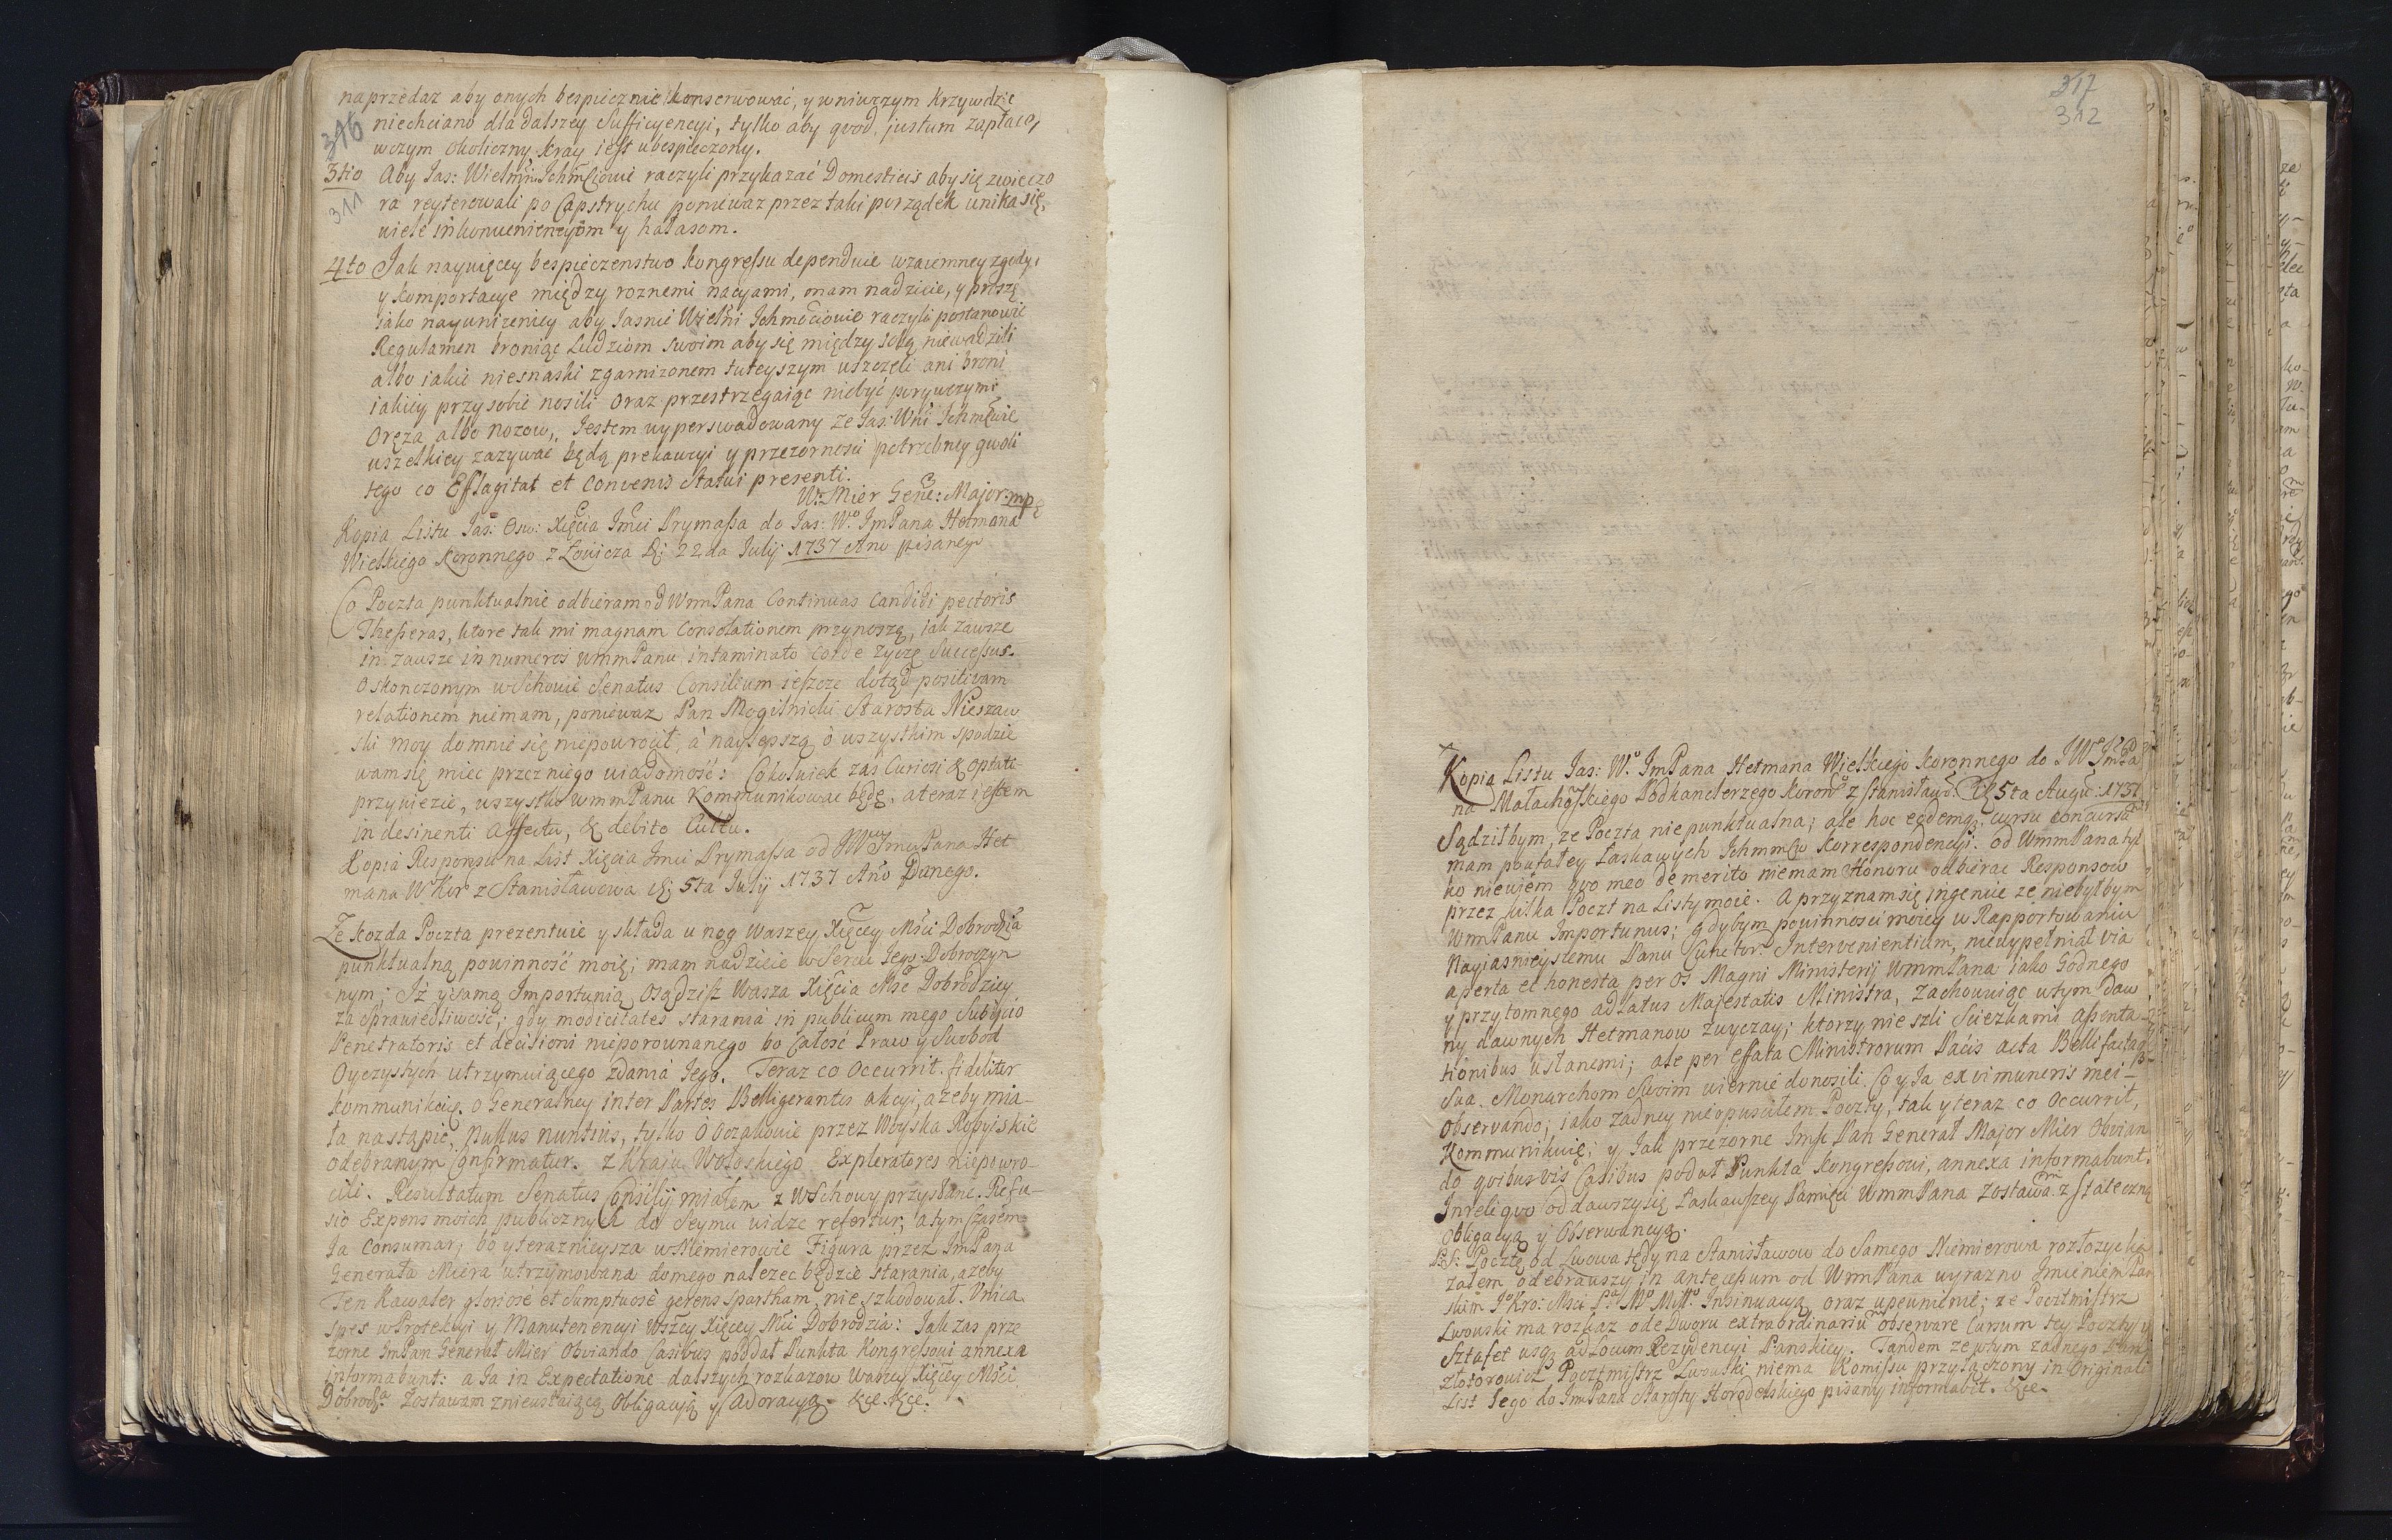 naprzedaz aby onych bespiecznie konserwować, y wniwczym Krzywdzie
316
niechciano dla dalszey Sufficyencyi, tylko aby qvod justum zapłaco,
wczym okoliczny Kray iest ubespieczony.
3tio Aby Jas: Wielmni Ichmciowie raczyli przykazać Domesticis aby się zwieczo
311
ra reyterowali po Capstrychu poniewaz przez taki porządek unika się,
wiele inkonweniencyom y hałasom.
4to Jak naywięcey bespieczenstwo Kongressu dependuie wzaiemney zgody,
y komportacye między roznemi nacyami, mam nadzieie, y proszę
iako nayunizeniey aby Jasnie Wielni Ichmościowie raczyli postanowić
Regulamen broniąc Ludziom swoim aby się między sobą niewadzili
albo iakie niesnaski zgarnizonem tuteyszym wszczęli ani broni
iakiey przy sobie nosili oraz przestrzegaiąc niebyć porywczymi
Oręza albo nozow,. Jestem wyperswadowany ze Jas: Wni Ichmciwie
wszelkiey zazywać będą prekaucyi y przezornosci potrzebney gwoli
tego co Efflagitat et Convenit Statui presenti.
W: Mier Gene: Major mp
Kopia Listu Jas: Osw: Xięcia Imci Prymassa do Jas: Wo ImPana Hetmana
Wielkiego Koronnego z Łowicza D: 22da Julij 1737 Ano pisanego
Co Poczta punktualnie odbieram od WmPana Continuas Candidi pectoris
Thesseras, ktore tak mi magnam Consolationem przynoszą, iak zawsze
in zawsze innumeros WmmPanu intaminato Corde zyczę Successus.
O skonczonym w Schowie Senatus Consilium ieszcze dotąd positivam
relationem niemam, poniewaz Pan Mogilnicki Starosta Nieszaw
ski moy domnie się niepowrocił, á naylepszą o wszystkim spodzie
wam się miec przez niego wiadomość: Cokolwiek zas Curiosi & optati
przywiezie, wszystko WmmPanu Kommunikować będę, a teraz iestem
in desinenti affectu, & debito Cultu.
Kopia Responsu na List Xięcia Imci Prymassa od JWo Imci Pana Het
mana W Kor z Stanisławowa D: 5ta Julij 1737 Ano Danego.
Ze kozda Poczta prezentuie y składa u nog Waszey Xięcey Mści Dobrodzia
punktualną powinność moię; mam nadzieie w Sercu Jego Dobroczyn
nym; Iż y samą Importunią osądzisz Wasza Xięcia Mść Dobrodziey
za sprawiedliwość; gdy modicitates starania in publicum mego Subijcio
Penetratoris et decisioni nieporownanego bo całosc Praw y Swobod
Oyczystych utrzymuiącego zdania Jego. Teraz co Occurrit fideliter
kommunikuię. o Generalney inter Partes Belligerantes akcyi, azeby mia-
ła nastąpic, nullus nuntius, tylko o Oczakowie przez Woyska Rossyiskie
odebranym Confirmatur. z Kraju Wołoskiego Exploratores niepowro-
cili. Resultatum Senatus Consilij miałem z Wschowy przysłane. Refu-
sio Expens moich publicznych do Seymu widze refertur, a tym czasem
Ja Consumor; bo y teraznieysza w Niemierowie Figura przez ImPana
Generała Miera utrzymowana domego nalezec będzie starania, azeby
Ten Kawaler gloriose et sumptuosè gerens spartham, nie szkodował. Unica
spes w Protekcyi y Manutenencyi Wszey Xięcey Mci Dobrodzia: Jak zas prze
zorne ImPan Generał Mier obviando Casibus poddał Punkta Kongressowi annexa
informabunt: a Ja in Expectatione dalszych rozkazow Waszey Xięcey Mści
Dobrodz. Zostawam znieustaiącą Obligacyą y Adoracyą. &ce &ce.
317
312
Kopia Listu Jas: Wo ImPana Hetmana Wielkiego Koronnego do JWo ImPa
na Małachowskiego Podkanclerzego Koronn z Stanisław. D: 5ta Augu: 1737
Sądziłbym, ze Poczta niepunktualna; ale hoc eodemq; cursu concurs
mam poufałey Łaskawych Ichmmciw Korrespondencyi. od WmmPana tyl
ko niewiem qvo meo demerito niemam Honoru odbierac Responsow
przez kilka Poczt na Listy moie. A przyznam się ingenue ze niebyłbym
WmPanu Importunus; gdybym powinnosci moiey w Rapportowaniu
Nayiasnieyszemu Panu Cunctor Intervenientium, niewypełniał via
aperta et honesta per Os Magni Ministerij WmmPana iako Godnego
y przytomnego ad Latus Majestatis Ministra, zachowuiąc wtym daw
ny dawnych Hetmanow zwyczay; ktorzy nie szli sciezkami assenta-
tionibus usłanemi; ale per effata Ministrorum Pacis acta Belli factaq;
sua Monarchom Swoim wiernie donosili. Co y Ja ex vi muneris mei
observando; iako zadney nieopuściłem Poczty, tak y teraz co Occurrit,
Kommunikuię; y Jak przezorne Imsc Pan Generał Major Mier Obvian
do qvibusvis Casibus podał Punkta Kongressowi, annexa informabunt.
Inreliqvo oddawszy się Łaskawszey Pamięci WmmPana zostawam z stateczną
Obligacyą y Observancyą.
P.S: Pocztę od Lwowa tędy na Stanisławow do Samego Niemierowa rozłozyć ka
załem odebrawszy in antecessum od WmPana wyrazno Imieniem Pan
skim Jo Kro: Mści P.a Mo Miło. Insinuacyą oraz upewnienie; ze Pocztmistrz
Lwowski ma rozkaz ode Dworu extraordinariu observare Cursum tey Poczty y
Sztafet usq; ad Locum Rezydencyi Panskiey. Tandem ze wtym zadnego Pan
Złotorowicz Pocztmistrz Lwowski niema Komissu przyłączony in Originali
List Jego do ImPana Starosty Horodelskiego pisany informabit. &ce.